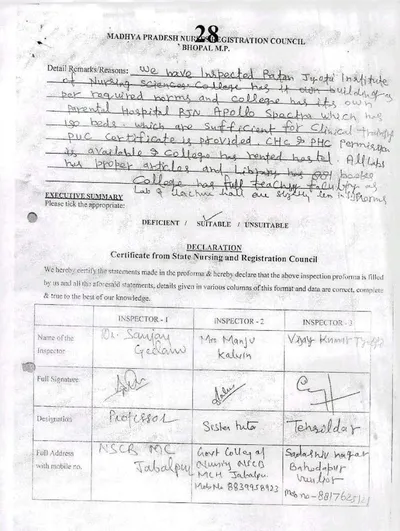 28
MADHYA PRADESH NURSES REGISTRATION COUNCIL
BHOPAL M.P.
Detail Remarks/Reasons: We have Inspected Ratan Jyoti Institute
of Nursing Sciences. College has it own building as
per required norms and college has its own
Parental Hospital RJN Apollo Spectra which has
150 beds. which are sufficient for Clinical
PUC Certificate is provided. CHC & PHC Permission
is available & College has rented hostel. All labs
has proper articles and Library has 881 books
College has full teaching faculty as
Lab & teaching hall are
EXECUTIVE SUMMARY
Please tick the appropriate:
DEFICIENT / SUITABLE / UNSUITABLE
DECLARATION
Certificate from State Nursing and Registration Council
We hereby certify the statements made in the proforma & hereby declare that the above inspection proforma is filled
by us and all the aforesaid statements, details given in various columns of this format and data are correct, complete
& true to the best of our knowledge.
INSPECTOR - 1 INSPECTOR - 2 INSPECTOR - 3
Name of the Inspector
Dr. Sanjay
Mrs Manju Kalvin
Vijay Kumar
Full Signature
Designation
Professor
Sister tutor
Tehsildar
Full Address with mobile no.
NSCB MC Jabalpur
Govt College of Nursing NSCB MCH Jabalpur
Mob No 8839958923
Bahodapur
Mob no -